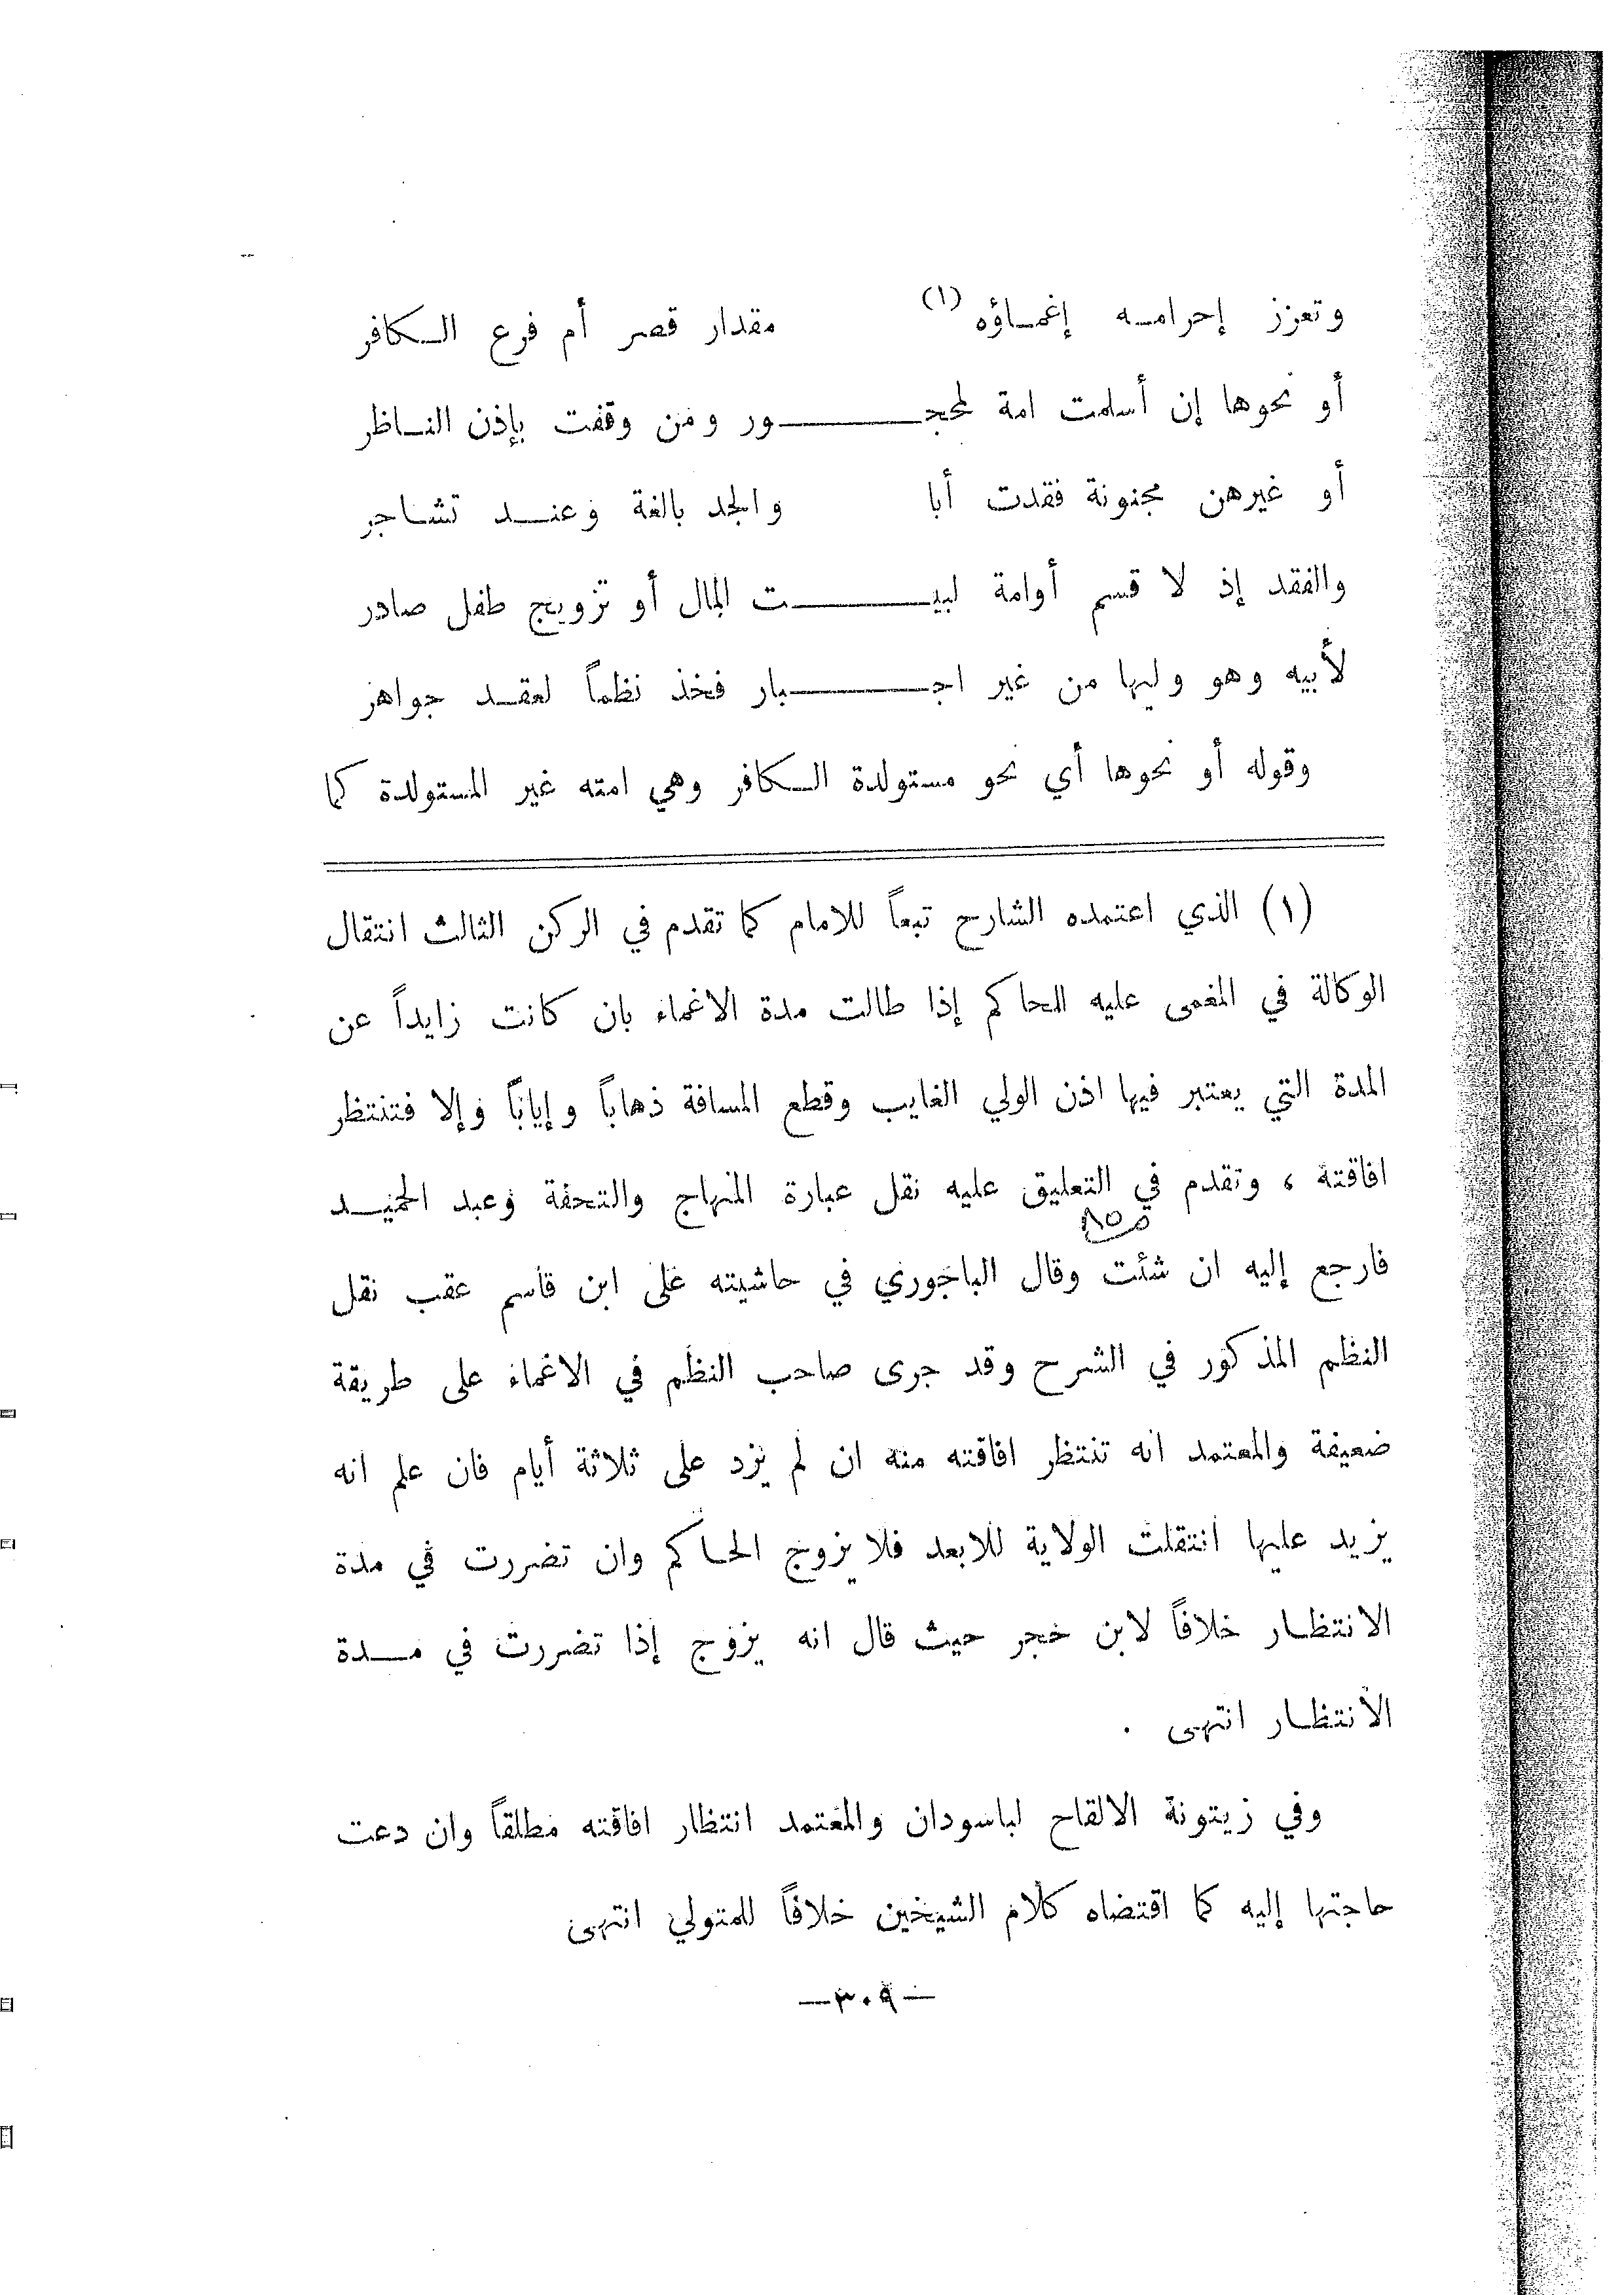 وتعزز إحرامـه إغمـاؤه (١) مقدار قصر أم فرع الـكافر
أو نحوها إن أسلمت امة لمحجـــور ومن وقفت بإذن النـاظر
أو غيرهن مجنونة فقدت أبا والجد بالغة وعنـد تشـاجر
والفقد إذ لا قسم أوامة لبيـــت المال أو تزويج طفل صادر
لأبيه وهو وليها من غير اجـــبار فخذ نظماً لعقـد جواهز
وقوله أو نحوها أي نحو مستولدة الـكافر وهي امته غير المستولدة كما
(١) الذي اعتمده الشارح تبعاً للامام كما تقدم في الركن الثالث انتقال
الوكالة في المغمى عليه للحاكم إذا طالت مدة الاغماء بان كانت زايداً عن
المدة التي يعتبر فيها اذن الولي الغايب وقطع المسافة ذهاباً وإياباً وإلا فتنتظر
افاقتة ، وتقدم في التعليق عليه نقل عبارة المنهاج والتحفة وعبد الحميـد
فارجع إليه ان شئت وقال الباجوري في حاشيته على ابن قاسم عقب نقل
النظم المذكور في الشرح وقد جرى صاحب النظم في الاغماء على طريقة
ضعيفة والمعتمد انه تنتظر افاقته منه ان لم يزد على ثلاثة أيام فان علم انه
يزيد عليها انتقلت الولاية للابعد فلا يزوج الحـاكم وان تضررت في مدة
الانتظـار خلافاً لابن حجر حيث قال انه يزوج إذا تضررت في مـدة
الانتظـار انتهى .
وفي زيتونة الالقاح لباسودان والمعتمد انتظار افاقته مطلقاً وان دعت
حاجتها إليه كما اقتضاه كلام الشيخين خلافاً للمتولي انتهى
— ٣٠٩ —